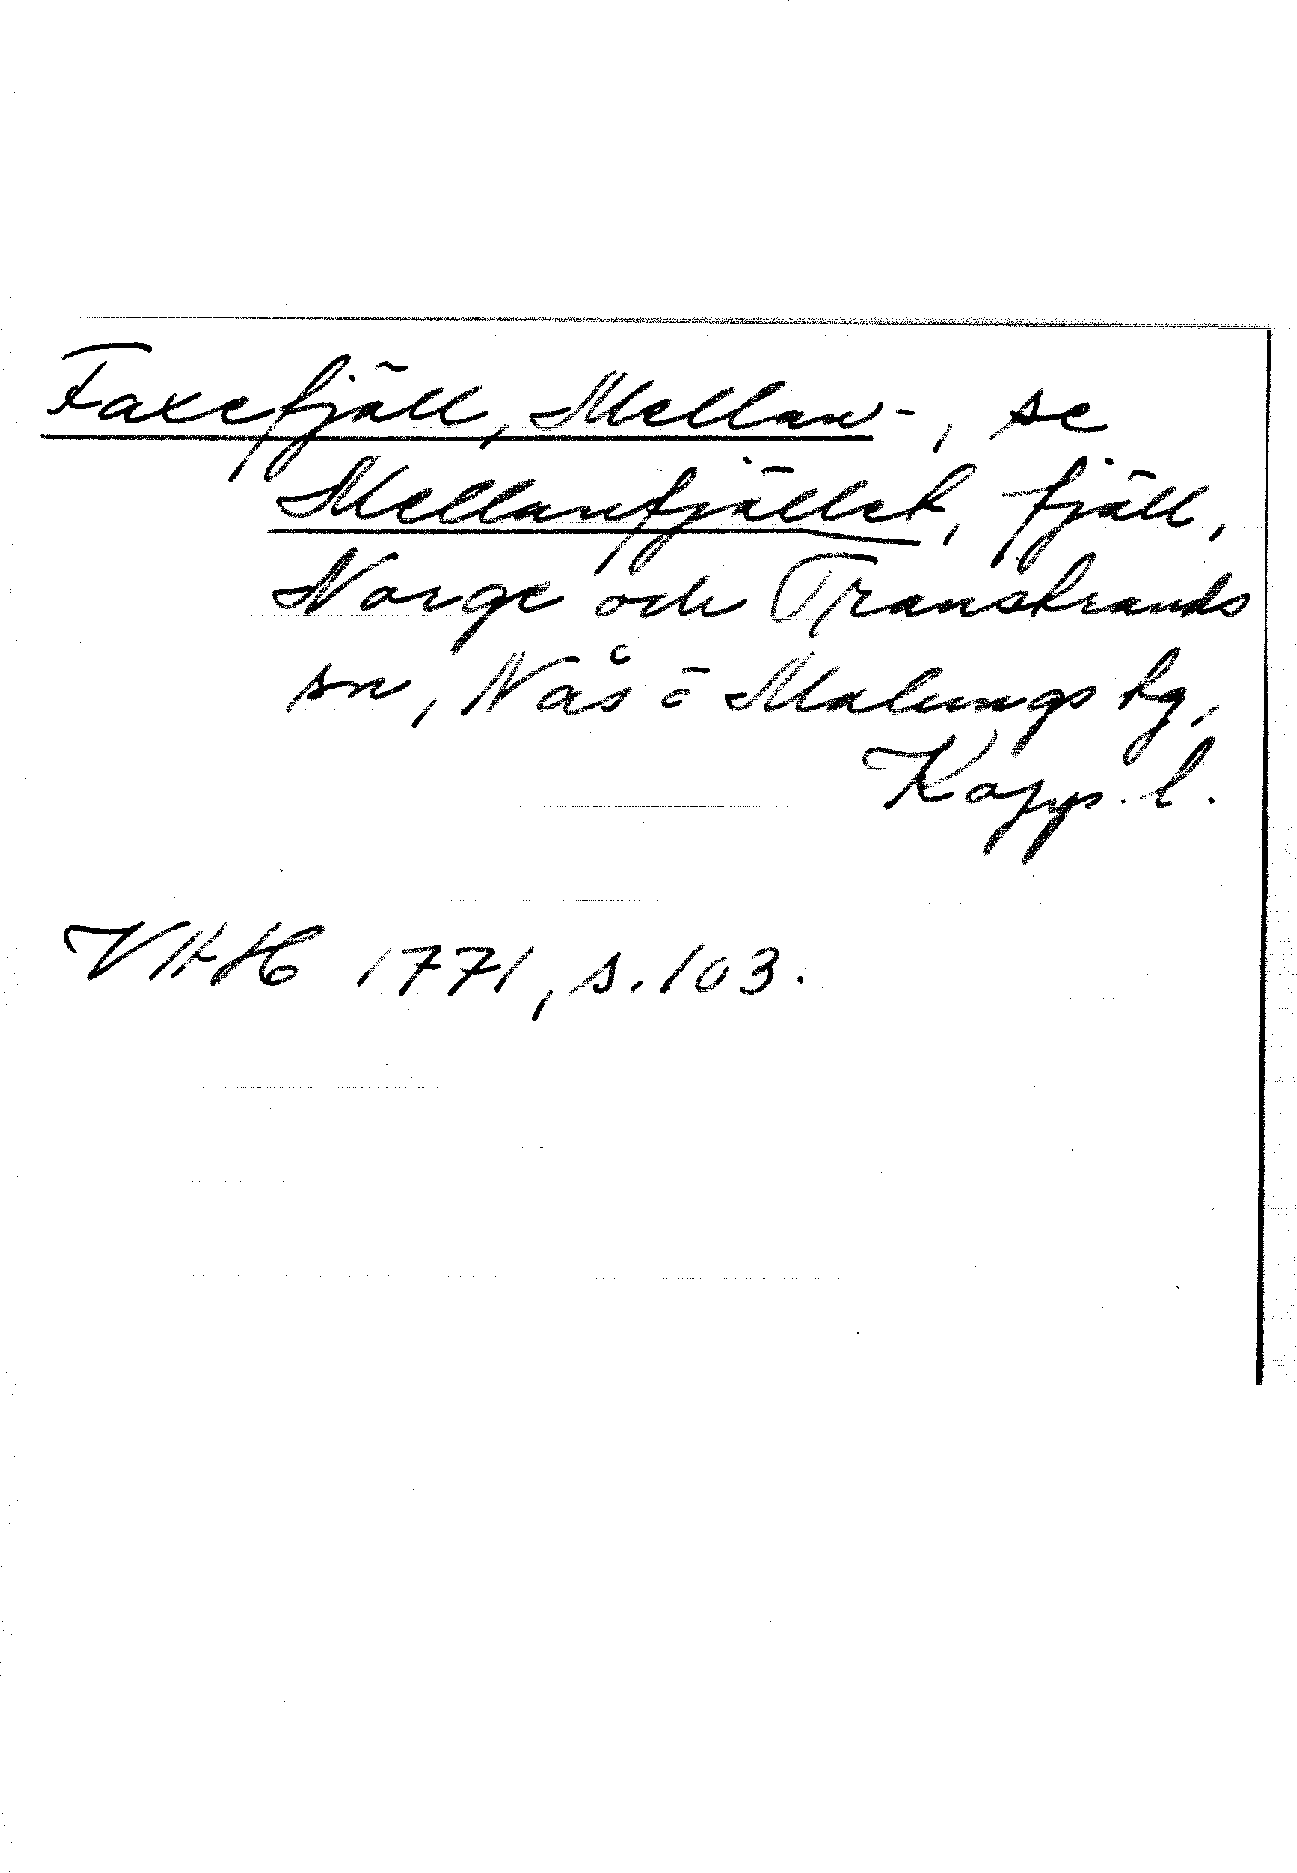 Faxefjäll, Mellan-, se
Mellanfjället, fjäll,
Norge och Transtrands
sn, Nås o Malungs tg,
Kopp. l.
VHH 1771, s. 103.